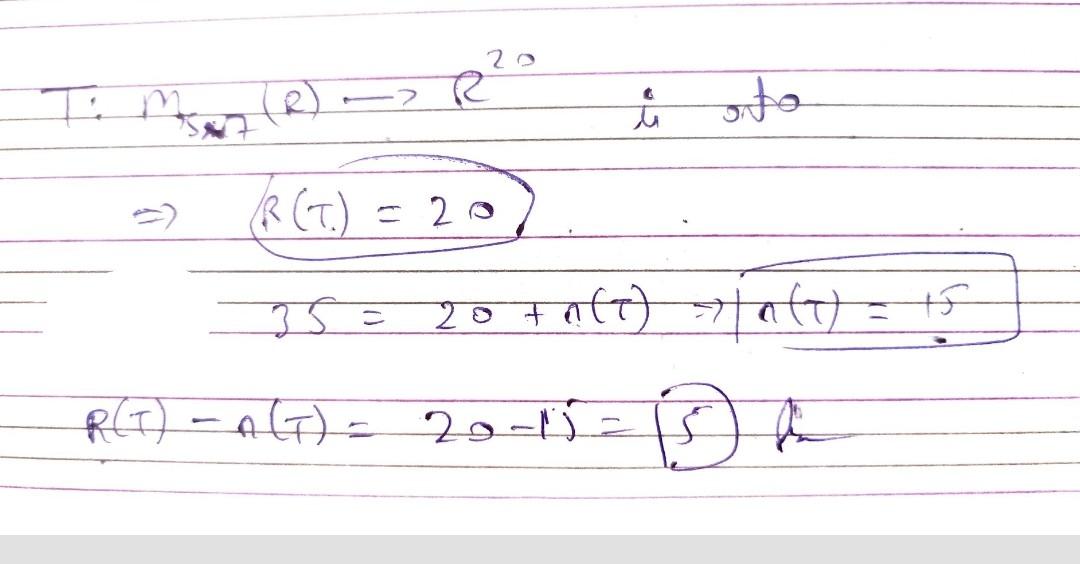 T: M₅ₓ₇(R) → R²⁰ is onto
⇒ R(T) = 20
35 = 20 + n(T) ⇒ n(T) = 15
R(T) - n(T) = 20 - 15 = 5